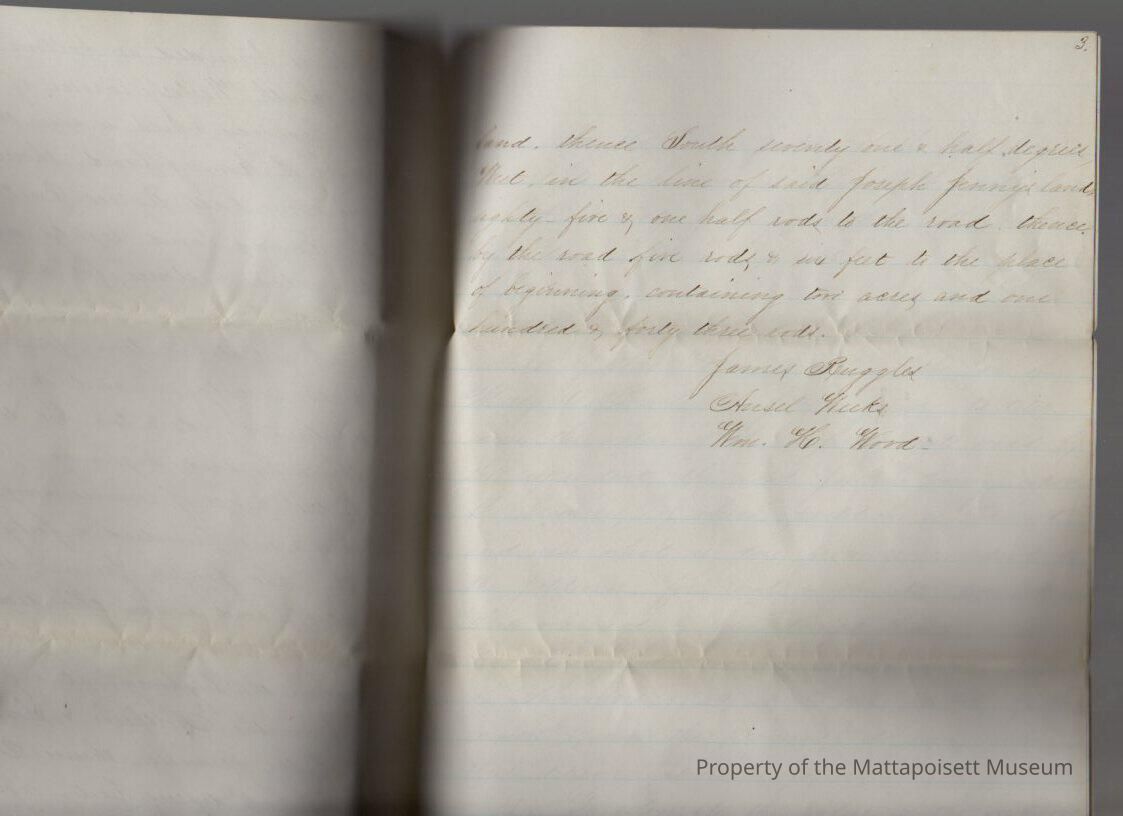 3.
land. thence South seventy one & half degrees
West, in the line of said Joseph Jenneys land,
eighty five & one half rods to the road. thence
by the road five rods, & six feet to the place
of beginning. containing two acres and one
hundred & forty three rods.
James Ruggles
Ansel Weeks
Wm. H. Wood
Property of the Mattapoisett Museum